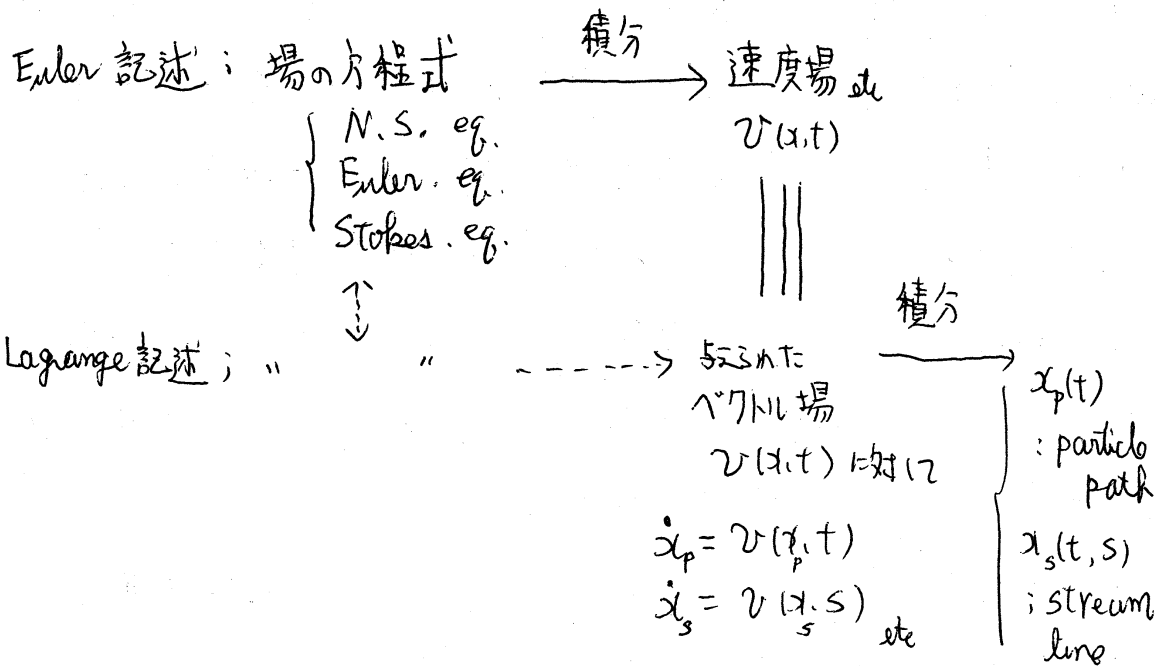 Euler 記述 ; 場の方程式 ⟶ 積分 速度場 etc
v(x,t)
{ N. S. eq.
Euler. eq.
Stokes. eq.
Lagrange 記述 ; 〃 〃 ⇢ 与えられた
ベクトル場
v(x,t) に対して
ẋ_p = v(x_p, t)
ẋ_s = v(x_s, s) etc
積分
x_p(t)
: particle
path
x_s(t, s)
; stream
line